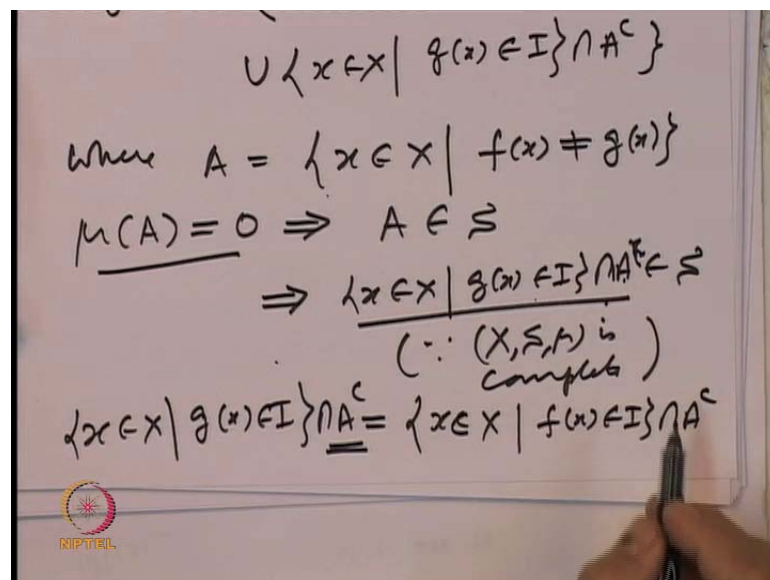 ∪ {x ∈ X | g(x) ∈ I} ∩ A^c }
where A = {x ∈ X | f(x) ≠ g(x)}
μ(A) = 0 ⇒ A ∈ S
⇒ {x ∈ X | g(x) ∈ I} ∩ A ∈ S
(∵ (X, S, μ) is
complete)
{x ∈ X | g(x) ∈ I} ∩ A^c = {x ∈ X | f(x) ∈ I} ∩ A^c
NPTEL